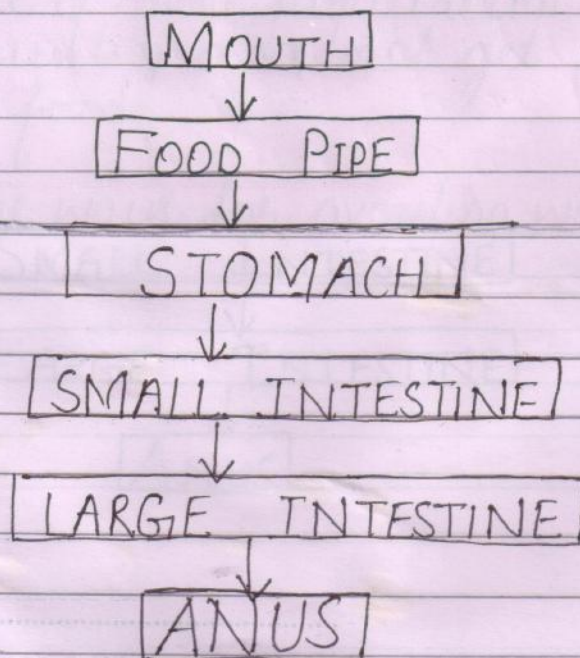 MOUTH
FOOD PIPE
STOMACH
SMALL INTESTINE
LARGE INTESTINE
ANUS